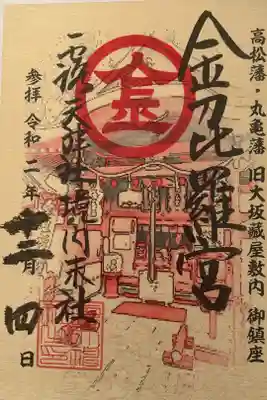 高松藩・丸亀藩 旧大坂蔵屋敷内 御鎮座
金毘羅宮
金
露天神社境内末社
参拝 令和二年
十二月
四日